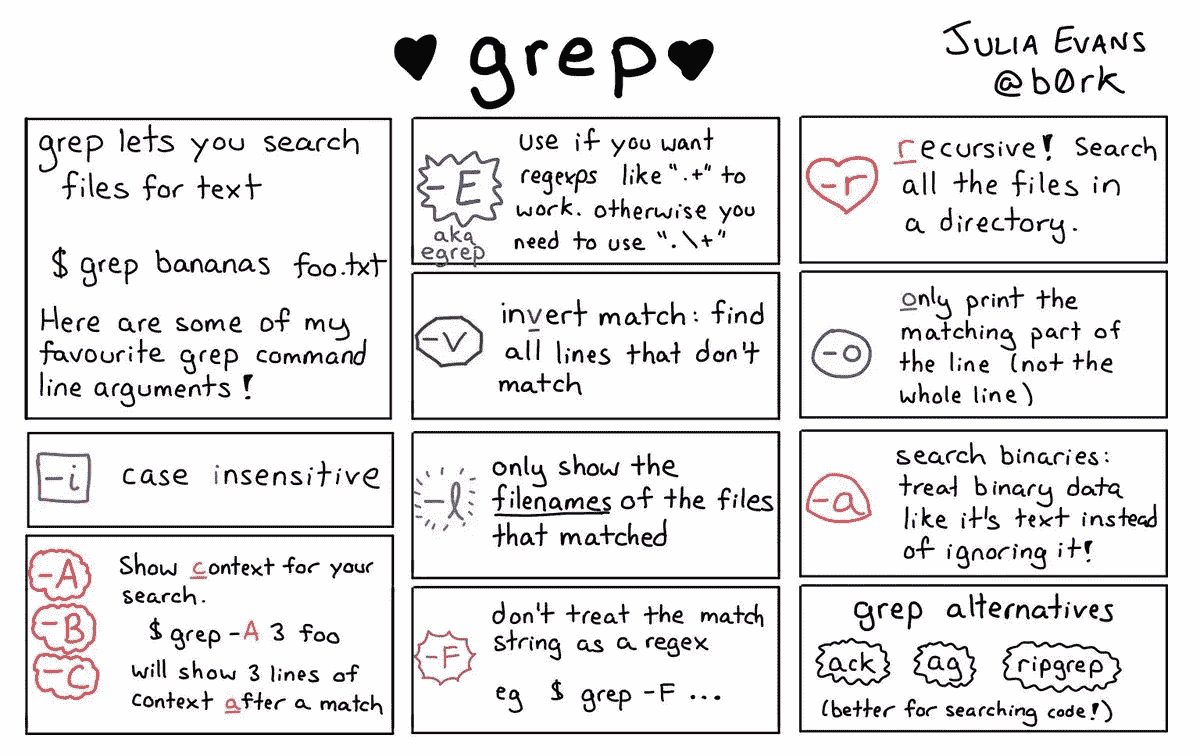 ♥ grep ♥
JULIA EVANS
@b0rk
grep lets you search
files for text
$ grep bananas foo.txt
Here are some of my
favourite grep command
line arguments!
-i
case insensitive
-A
-B
-C
Show context for your
search.
$ grep -A 3 foo
will show 3 lines of
context after a match
-E
aka
egrep
use if you want
regexps like ".+" to
work. otherwise you
need to use ".\+"
-v
invert match: find
all lines that don't
match
-l
only show the
filenames of the files
that matched
-F
don't treat the match
string as a regex
eg $ grep -F ...
-r
recursive! Search
all the files in
a directory.
-o
only print the
matching part of
the line (not the
whole line)
-a
search binaries:
treat binary data
like it's text instead
of ignoring it!
grep alternatives
ack ag ripgrep
(better for searching code!)